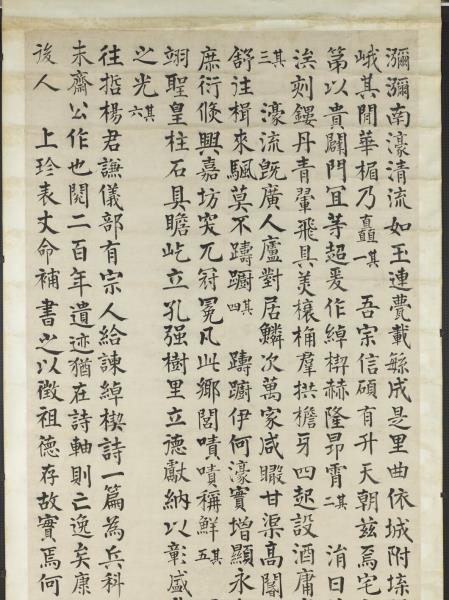 瀰瀰南濠清流如玉連甍載緐成是里曲依城附埭
峨其閒華楣乃矗其一 吾宗信碩有升天朝兹焉宅
第以貴闢門宜等超爰作綽楔赫隆昂霄其二 涓日
涘刻鏤丹青翬飛具美欀桷羣拱檐牙四起設酒庸
其三 濠流旣廣人廬對居鱗次萬家咸瞰甘渠高闇
舒注楫來颿莫不躊躕其四 躊躕伊何濠實增顯永
庶衍倐興嘉坊突兀冠冕凡此鄉閭嘖嘖稱鮮其五
翊聖皇柱石具瞻屹立孔强樹里立德獻納以彰盛
之光其六
往哲楊君謙儀部有宗人給諫綽楔詩一篇為兵科
未齋公作也閱二百年遺迹猶在詩軸則亡逸矣康
後人 上珍表丈命補書之以徵祖德存故實焉何